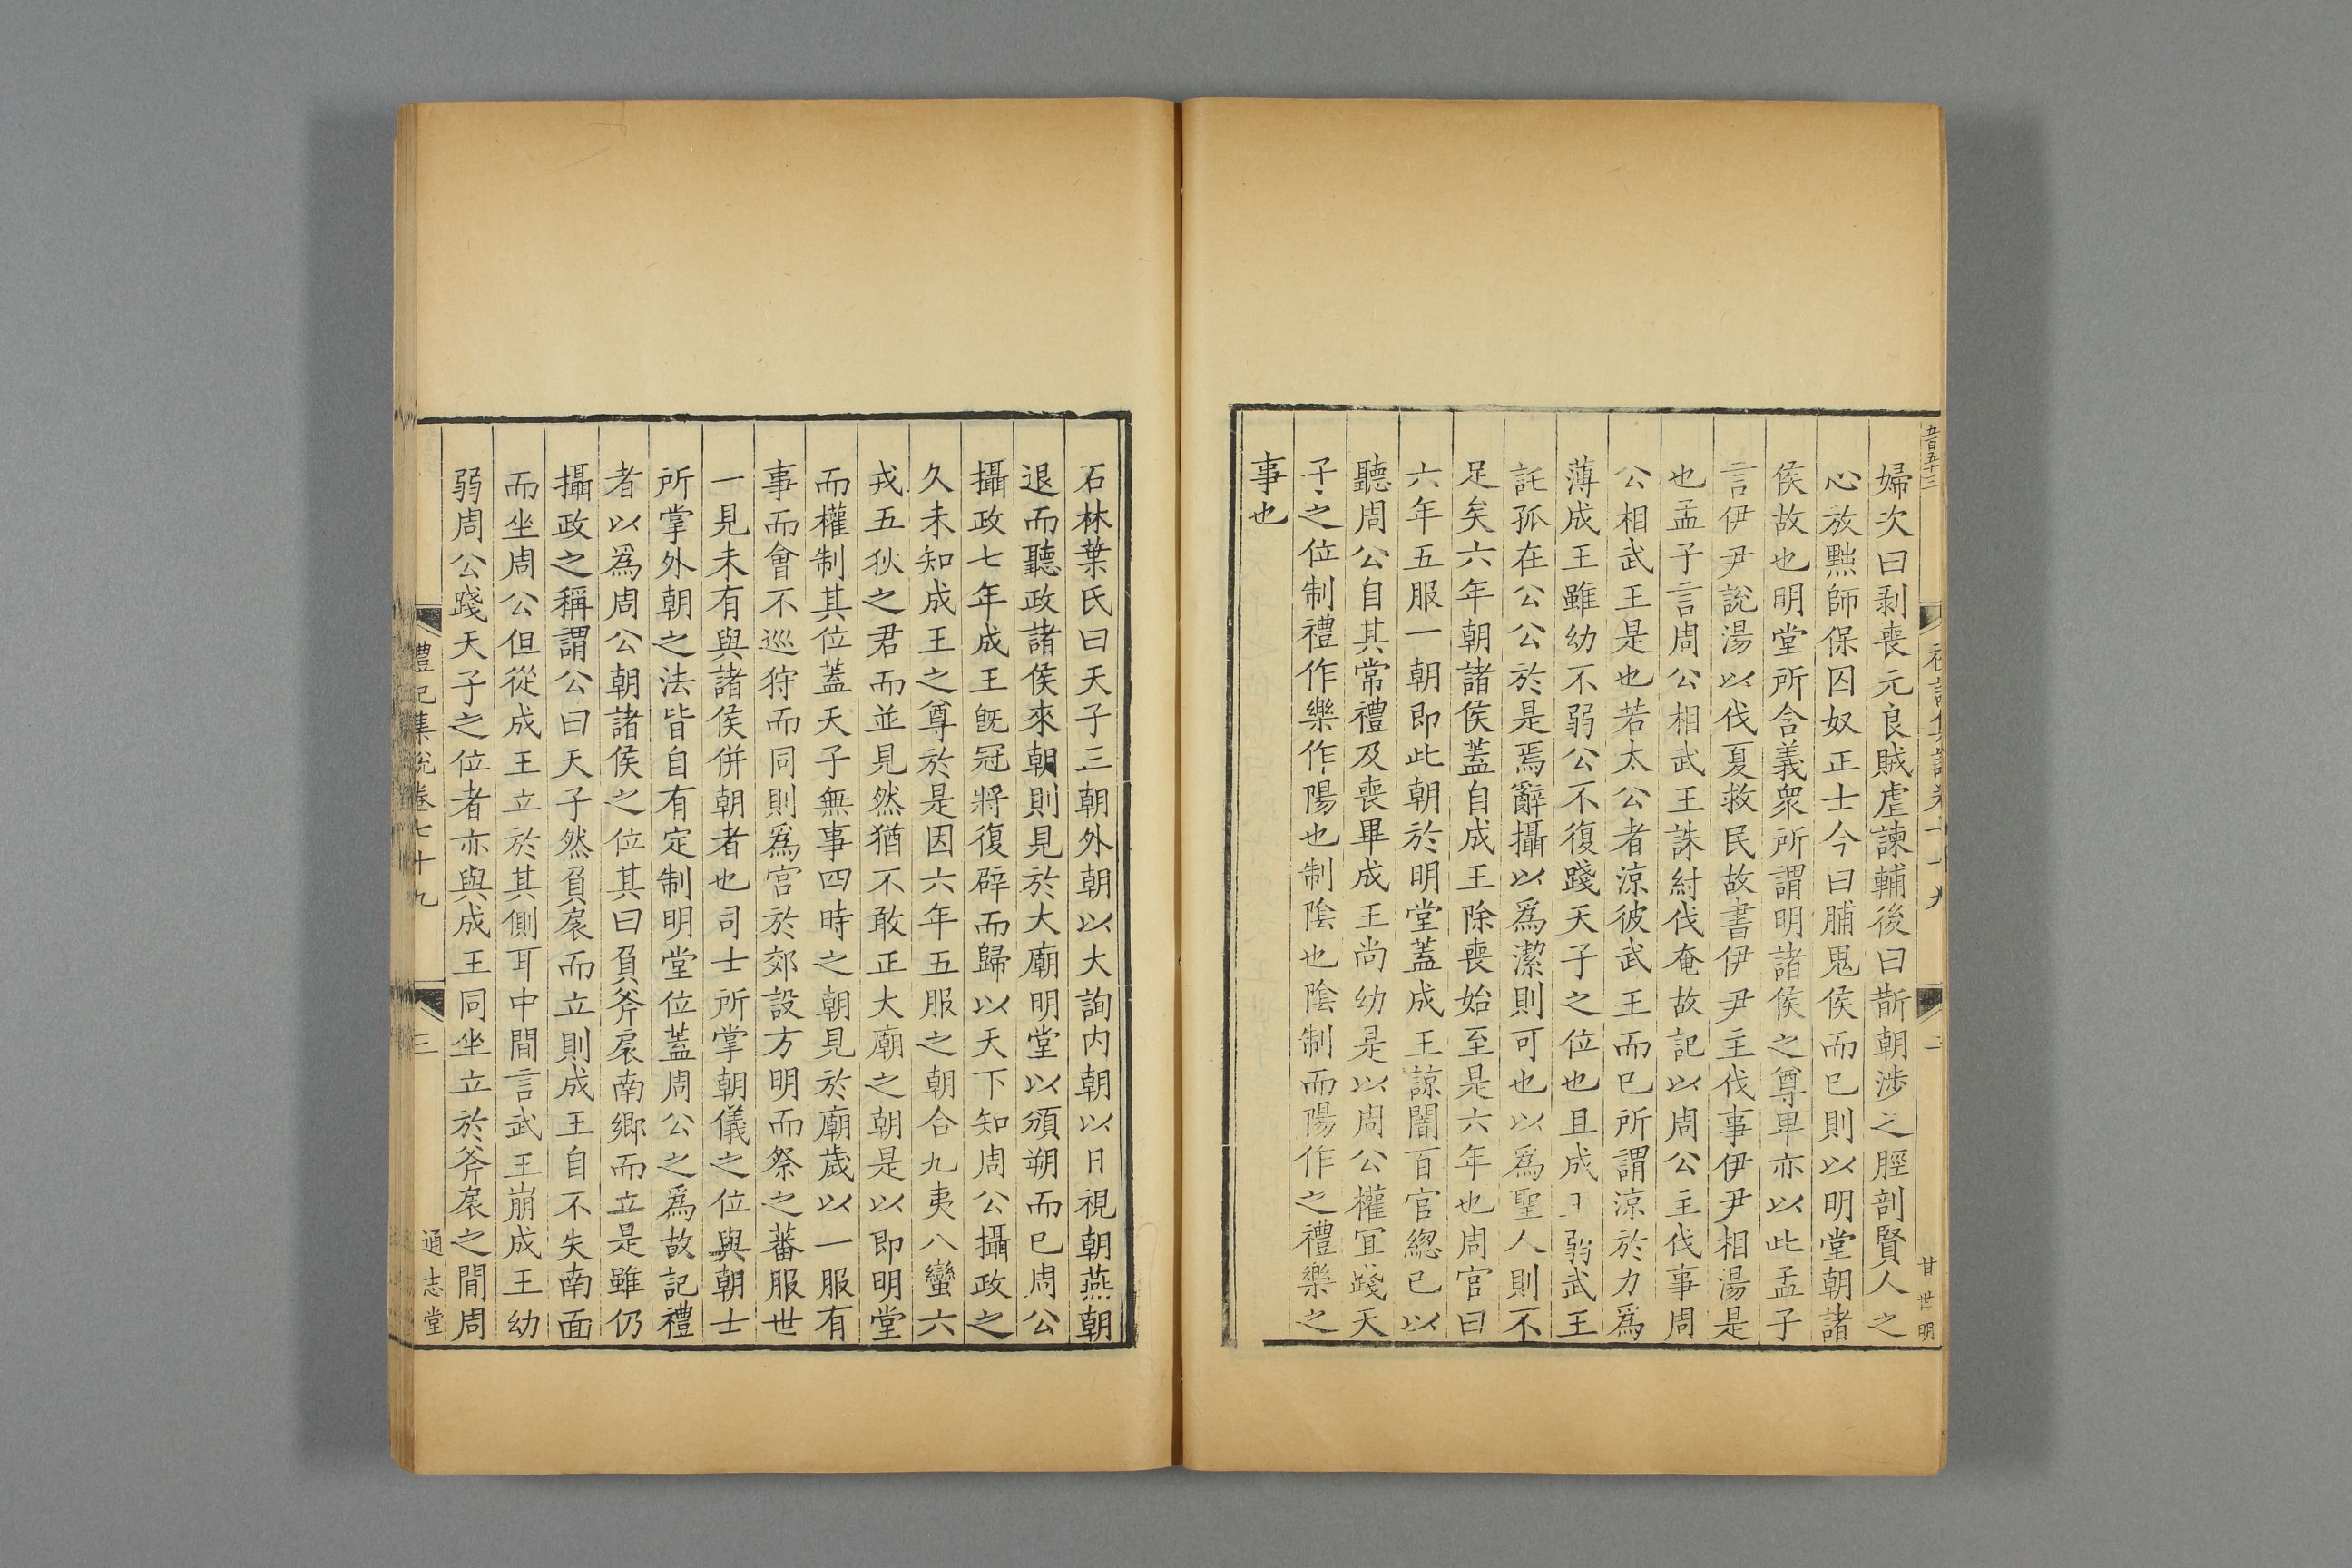 五百五十三
二
甘世明
婦次曰剥喪元良賊虐諫輔後曰斮朝涉之脛剖賢人之
心放黜師保囚奴正士今曰脯鬼侯而已則以明堂朝諸
侯故也明堂所含義衆所謂明諸侯之尊卑亦以此孟子
言伊尹說湯以伐夏救民故書伊尹主伐事伊尹相湯是
也孟子言周公相武王誅紂伐奄故記以周公主伐事周
公相武王是也若太公者涼彼武王而已所謂涼於力爲
薄成王雖幼不弱公不復踐天子之位也且成弱武王
託孤在公公於是焉辭攝以爲潔則可也以爲聖人則不
足矣六年朝諸侯蓋自成王除喪始至是六年也周官曰
六年五服一朝即此朝於明堂蓋成王諒闇百官緫已以
聽周公自其常禮及喪畢成王尚幼是以周公權宜踐天
子之位制禮作樂作陽也制陰也陰制而陽作之禮樂之
事也
石林葉氏曰天子三朝外朝以大詢内朝以日視朝燕朝
退而聽政諸侯來朝則見於大廟明堂以頒朔而已周公
攝政七年成王旣冠將復辟而歸以天下知周公攝政之
久未知成王之尊於是因六年五服之朝合九夷八蠻六
戎五狄之君而並見然猶不敢正大廟之朝是以即明堂
而權制其位蓋天子無事四時之朝見於廟歲以一服有
事而會不巡狩而同則爲宮於郊設方明而祭之蕃服世
一見未有與諸侯併朝者也司士所掌朝儀之位與朝士
所掌外朝之法皆自有定制明堂位蓋周公之爲故記禮
者以爲周公朝諸侯之位其曰負斧扆南鄉而立是雖仍
攝政之稱謂公曰天子然負扆而立則成王自不失南面
而坐周公但從成王立於其側耳中間言武王崩成王幼
弱周公踐天子之位者亦與成王同坐立於斧扆之間周
禮記集說卷七十九
三
通志堂